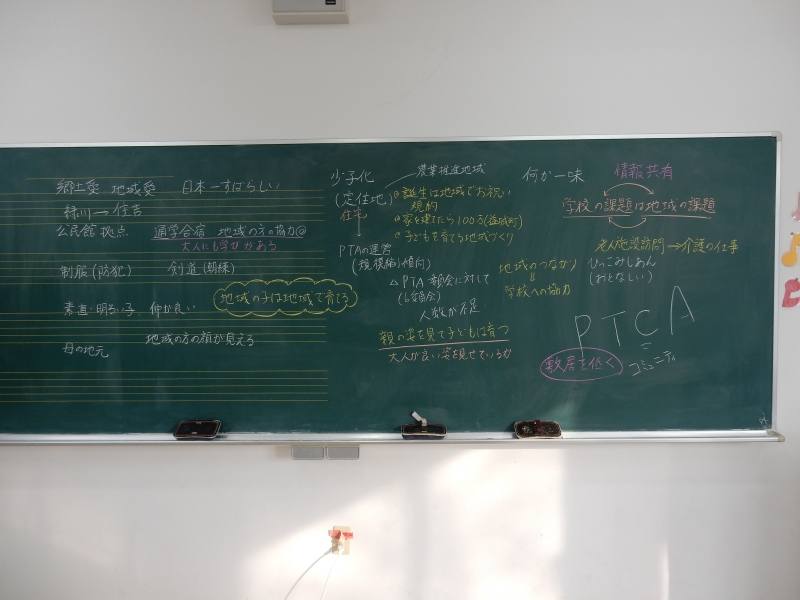 郷土愛 地域愛 日本一すばらしい
緑川→住吉
公民館拠点 通学合宿 地域の方の協力◎
大人にも学せがある
制服(防犯) 剣道(朝練)
素直・明るい子 仲が良い
地域の子は地域で育てる
母の地元 地域の方の顔が見える
少子化
(定住地)
住宅
農業推進地域
誕生は地域でお祝い
規約
家を建てたら100万(益城町)
子どもを育てる地域づくり
PTAの運営
(規模縮小傾向)
△PTA部会に対して
(6部会)
人数が不足
親の姿を見て子どもは育つ
大人が良い姿を見せているか
何か一味
情報共有
学校の課題は地域の課題
老人施設訪問→介護の仕事
ひっこみじあん
(おとなしい)
地域のつながり
学校への協力
PTCA
コミュニティ
敷居を低く